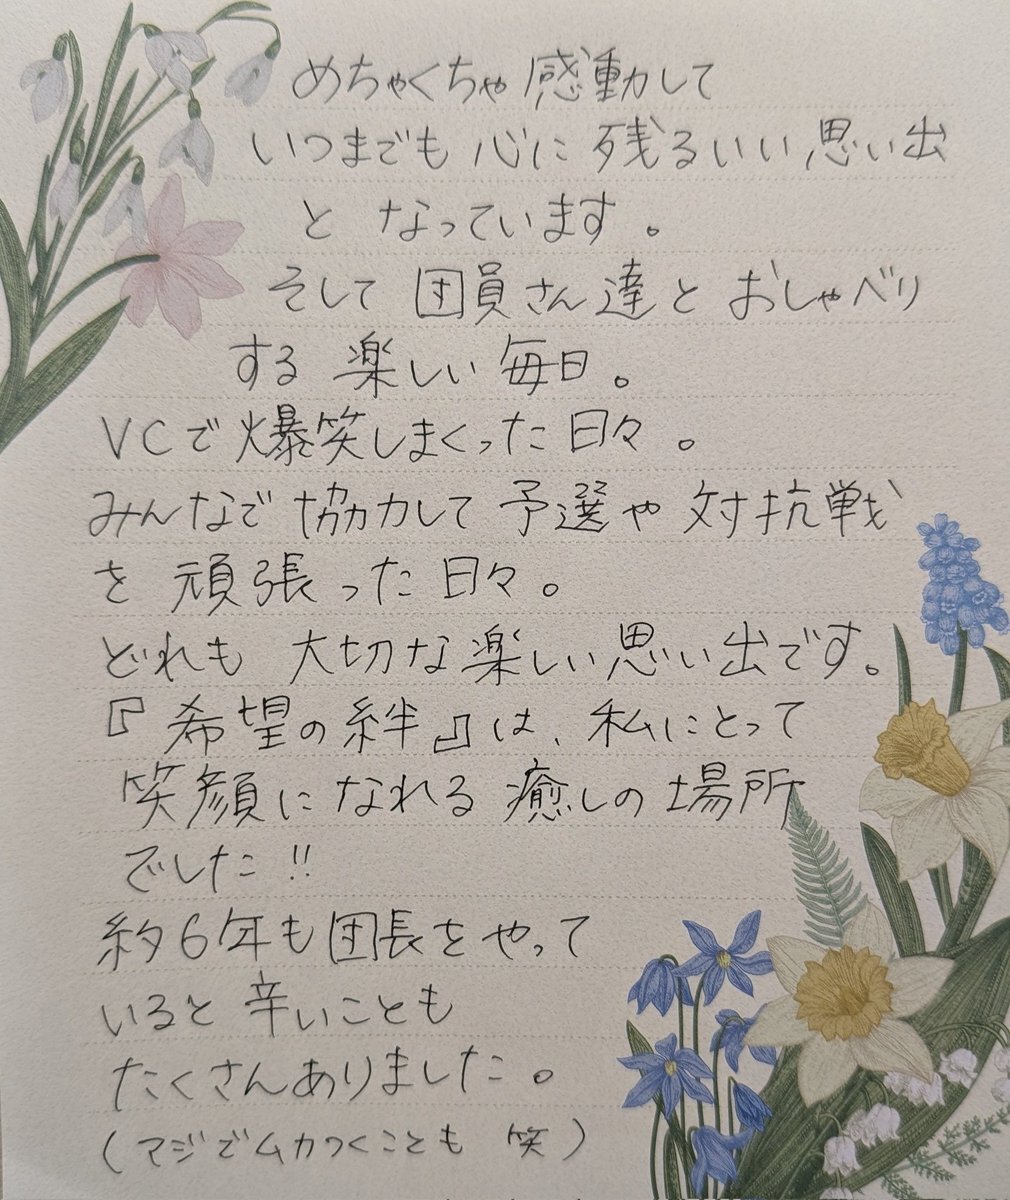 めちゃくちゃ感動して
いつまでも心に残るいい思い出
となっています。
そして団員さん達とおしゃべり
する楽しい毎日。
VCで爆笑しまくった日々。
みんなで協力して予選や対抗戦
を頑張った日々。
どれも大切な楽しい思い出です。
『希望の絆』は、私にとって
笑顔になれる癒しの場所
でした!!
約6年も団長をやって
いると辛いことも
たくさんありました。
(マジでムカつくことも 笑)